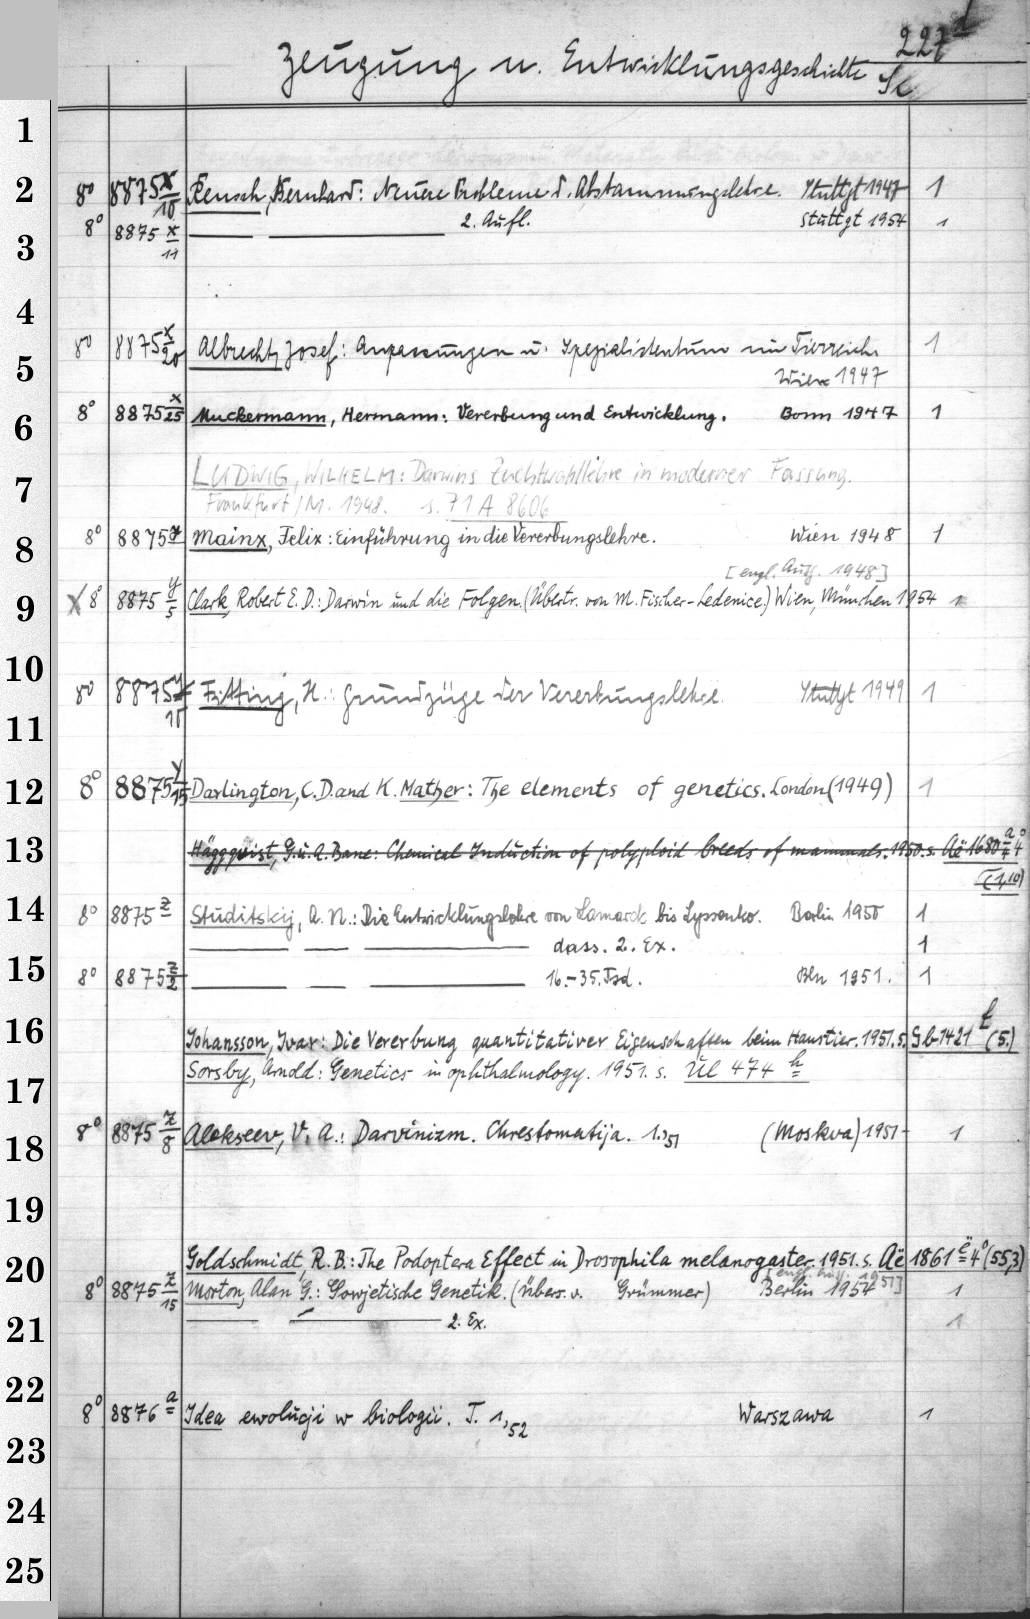 227d
Zeugung u. Entwicklungsgeschichte Sc
1
2 8° 8875 x/10 Rensch, Bernhard: Neuere Probleme d. Abstammungslehre. Stuttgt 1947 1
8° 8875 x/11 — — 2. Aufl. Stuttgt 1954 1
3
4
8° 8875 x/20 Albrecht, Josef: Anpassungen u. Spezialistentum im Tierreich 1
5 Wien 1947
6 8° 8875 x/25 Muckermann, Hermann: Vererbung und Entwicklung. Bonn 1947 1
7 LUDWIG, WILHELM: Darwins Zuchtwahllehre in moderner Fassung.
Frankfurt/M. 1948. s. 71 A 8606
8 8° 8875 y Mainx, Felix: Einführung in die Vererbungslehre. Wien 1948 1
[engl. Aufl. 1948]
9 X 8° 8875 y/5 Clark, Robert E. D.: Darwin und die Folgen. (Übertr. von M. Fischer-Ledenice.) Wien, München 1954 1
10
8° 8875 y/10 Fitting, H.: Grundzüge der Vererbungslehre. Stuttgt 1949 1
11
12 8° 8875 y/15 Darlington, C.D. and K. Mather: The elements of genetics. London (1949) 1
13 Häggqvist, G. u. A. Bane: Chemical Induction of polyploid breeds of mammals. 1950. s. Aë 1680 a/4 4°
(1,10)
14 8° 8875 z Studitskij, A. N.: Die Entwicklungslehre von Lamarck bis Lyssenko. Berlin 1950 1
— — — dass. 2. Ex. 1
15 8° 8875 z/2 — — — 16.-35. Tsd. Bln 1951. 1
16 Johansson, Ivar: Die Vererbung quantitativer Eigenschaften beim Haustier. 1951. s. Gb 1421 t (5.)
17 Sorsby, Arnold: Genetics in ophthalmology. 1951. s. Ül 474 h
18 8° 8875 z/8 Alekseev, V. A.: Darvinizm. Chrestomatija. 1.,51 (Moskva) 1951- 1
19
20 Goldschmidt, R.B.: The Podoptera Effect in Drosophila melanogaster. 1951. s. Aë 1861 ë 4° (55,3)
[engl. Aufl. 1951]
8° 8875 z/15 Morton, Alan G.: Sowjetische Genetik. (Übers. v. Grümmer) Berlin 1954 1
21 — — 2. Ex. 1
22
8° 8876 a Idea ewolucji w biologii. T. 1,52 Warszawa 1
23
24
25